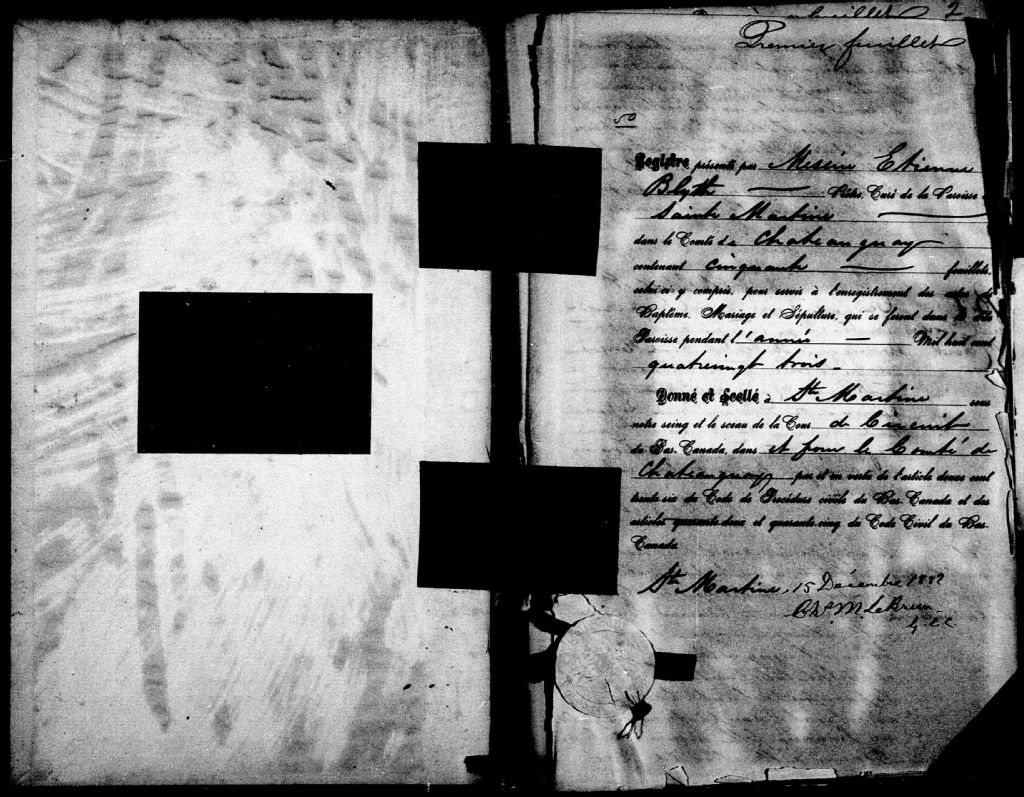 feuillet 2
Premier feuillet
50
Registre présenté par Messire Etienne
Blyth Ptre, Curé de la Paroisse
Sainte Martine
dans le Comté de Chateauguay
contenant cinquante feuillets,
celui-ci y compris, pour servir à l'enregistrement des actes de
Baptême, Mariage et Sépulture, qui se feront dans la dite
Paroisse pendant l'année Mil huit cent
quatrevingt trois.
Donné et Scellé à Ste Martine sous
notre seing et le sceau de la Cour de Circuit
du Bas-Canada, dans et pour le Comté de
Chateauguay par et en vertu de l'article douze cent
trente-six du Code de Procédure civile du Bas-Canada et des
articles quarante-deux et quarante-cinq du Code Civil du Bas-
Canada
Ste Martine, 15 Décembre 1882
M. LeBrun
G. C. C.